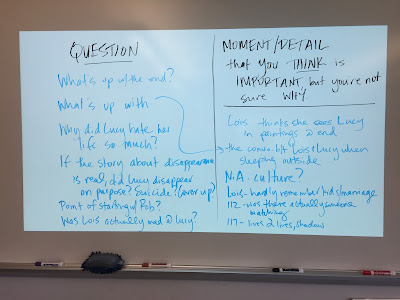 QUESTION
What's up w/ the end?
What's up with
Why did Lucy hate her
life so much?
If the story about disappearance
is real, did Lucy disappear
on purpose? Suicide? Cover up?
Point of starting w/ Rob?
Was Lois actually mad @ Lucy?
MOMENT/DETAIL
that you THINK is
IMPORTANT, but you're not
sure WHY.
Lois thinks she sees Lucy
in paintings @ end
the convo. b/t Lois & Lucy when
sleeping outside
N.A. culture?
Lois - hardly remember kids/marriage
112 - was there actually someone
watching
117 - lives 2 lives, shadow